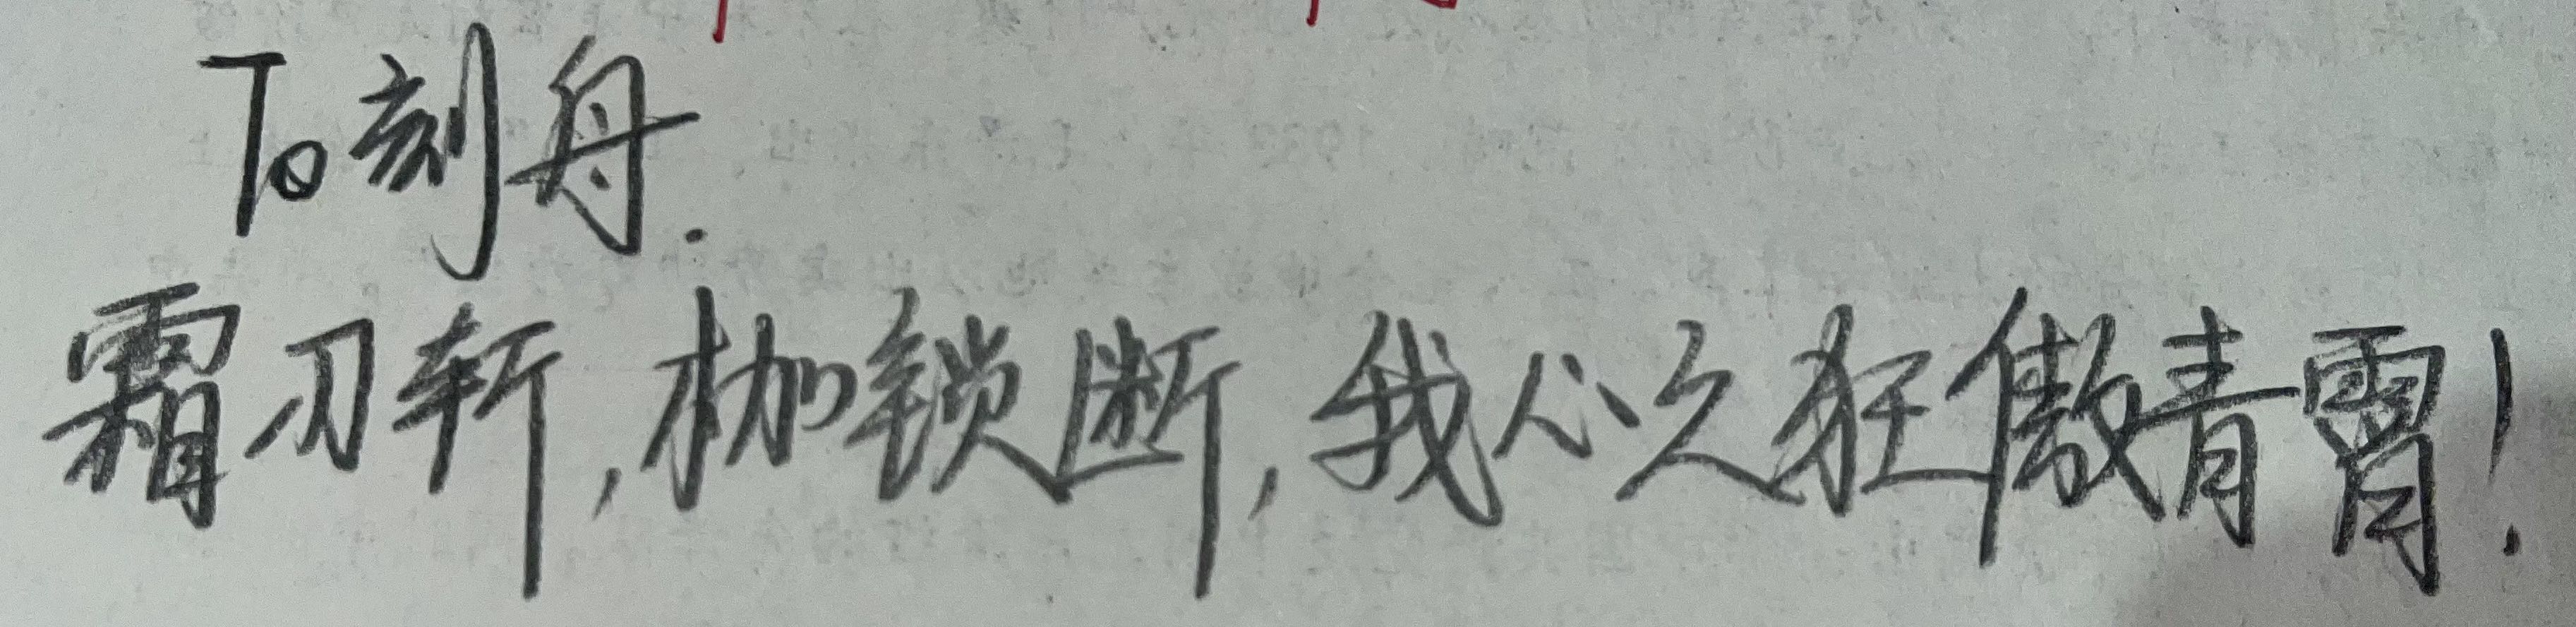 To刻舟.
霜刃斩,枷锁断,我心之狂傲青霄!